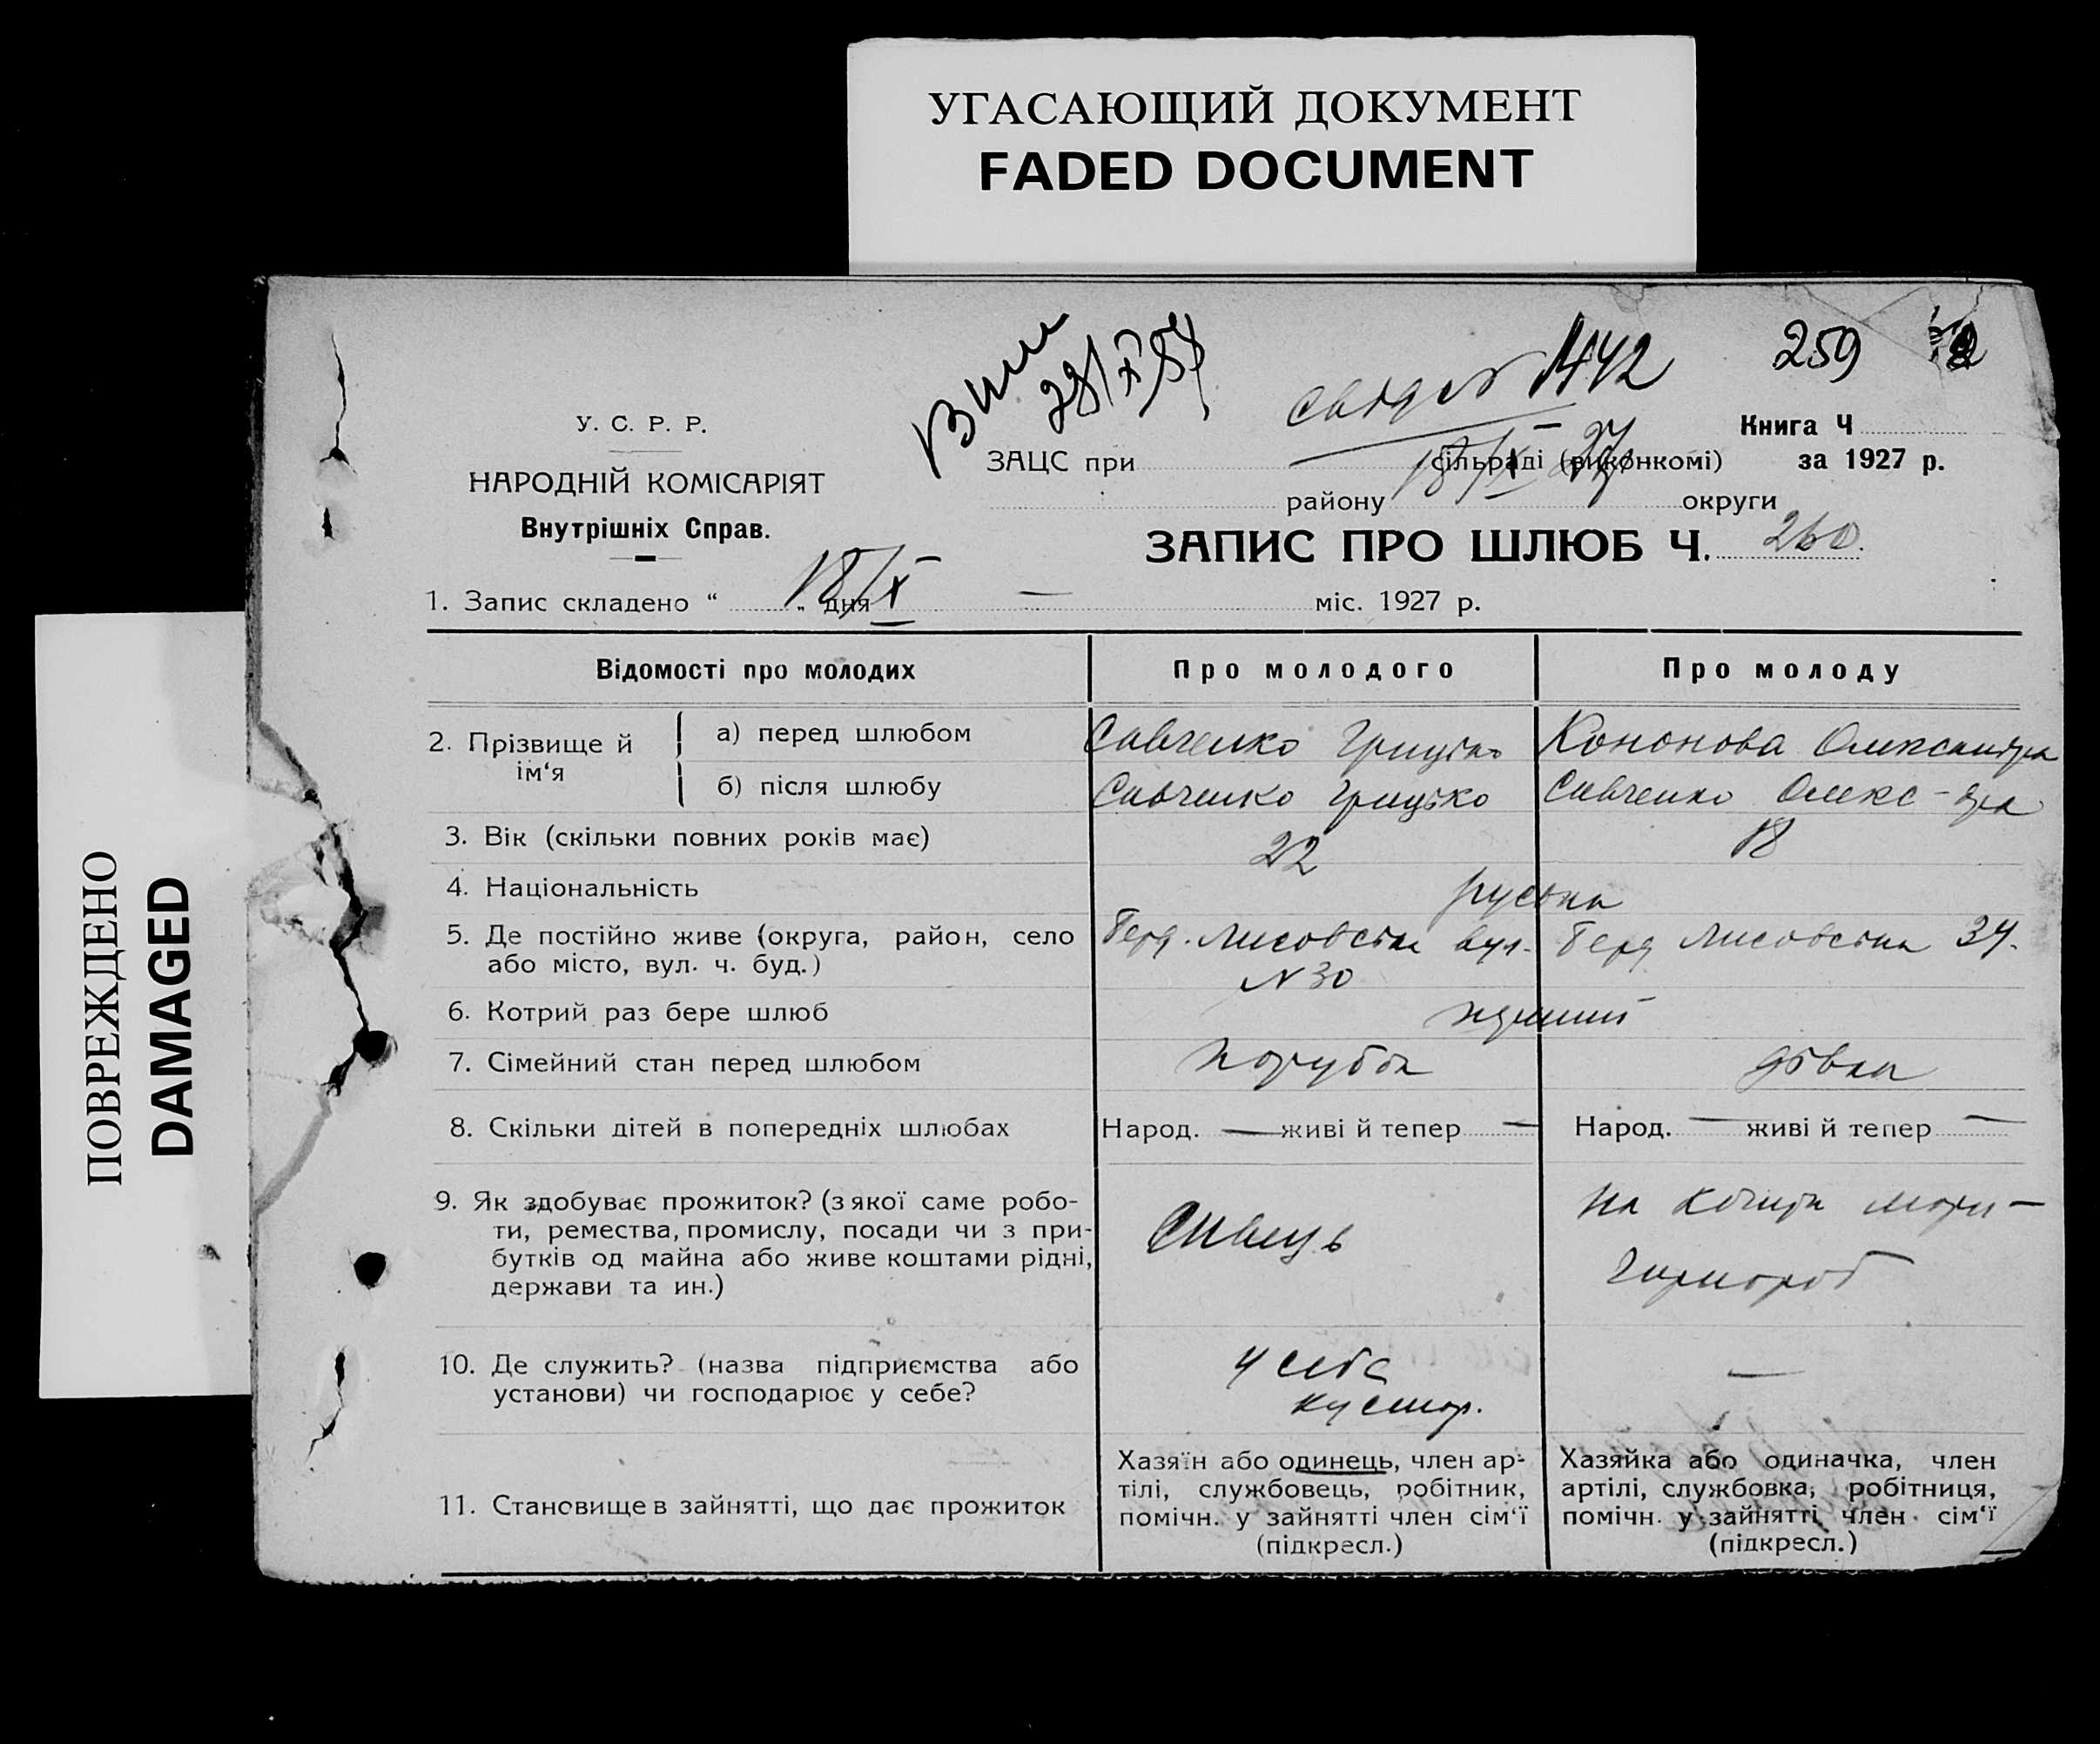 УГАСАЮЩИЙ ДОКУМЕНТ
FADED DOCUMENT
ПОВРЕЖДЕНО
DAMAGED
259
1442
28/X
У. С. Р. Р.
НАРОДНІЙ КОМІСАРІЯТ
Внутрішніх Справ.
Книга Ч
ЗАЦС при сільраді (виконкомі) за 1927 р.
18/X 27
району округи
ЗАПИС ПРО ШЛЮБ Ч. 260.
1. Запис складено “ 18/X „ дня — міс. 1927 р.
Відомості про молодих Про молодого Про молоду
2. Прізвище й ім‘я
а) перед шлюбом Савченко Грицько Кононова Олександра
б) після шлюбу Савченко Грицько Савченко Олекс-дра
3. Вік (скільки повних років має) 22 18
4. Національність руська
5. Де постійно живе (округа, район, село Берд. Лисовська вул. Берд Лисовська 34.
або місто, вул. ч. буд.) N 30
6. Котрий раз бере шлюб перший
7. Сімейний стан перед шлюбом парубок дівка
8. Скільки дітей в попередніх шлюбах Народ. — живі й тепер — Народ. — живі й тепер —
9. Як здобуває прожиток? (з якої саме робо-
ти, ремества, промислу, посади чи з при-
бутків од майна або живе коштами рідні,
держави та ин.)
на
10. Де служить? (назва підприємства або
установи) чи господарює у себе?
у себе
кустар.
—
11. Становище в зайнятті, що дає прожиток
Хазяїн або одинець, член ар-
тілі, службовець, робітник,
помічн. у зайнятті член сім‘ї
(підкресл.)
Хазяйка або одиначка, член
артілі, службовка, робітниця,
помічн. у зайнятті член сім‘ї
(підкресл.)